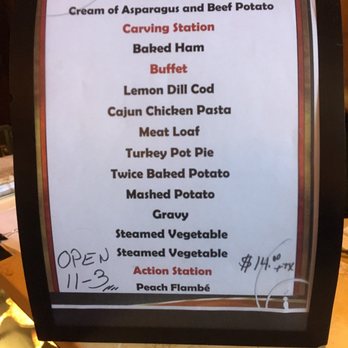 Cream of Asparagus and Beef Potato
Carving Station
Baked Ham
Buffet
Lemon Dill Cod
Cajun Chicken Pasta
Meat Loaf
Turkey Pot Pie
Twice Baked Potato
Mashed Potato
Gravy
Steamed Vegetable
Steamed Vegetable
Action Station
Peach Flambé
OPEN
11-3
$14.00
+TX